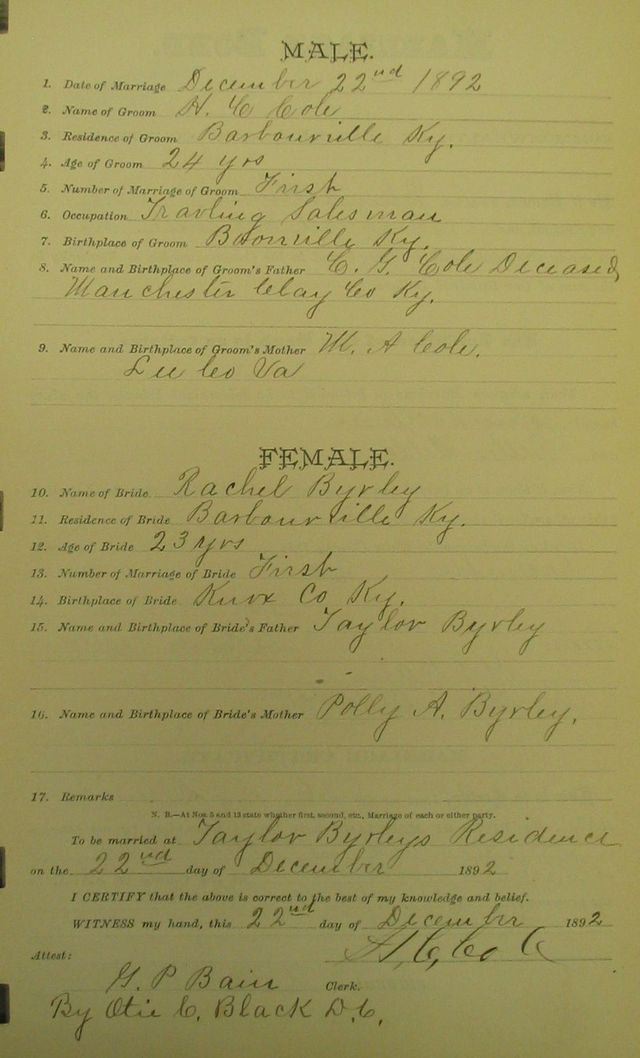 MALE.
1. Date of Marriage December 22nd 1892
2. Name of Groom H. C Cole
3. Residence of Groom Barbourville Ky.
4. Age of Groom 24 yrs
5. Number of Marriage of Groom First
6. Occupation Travling Salesman
7. Birthplace of Groom Boonville Ky.
8. Name and Birthplace of Groom's Father C. G. Cole Deceased,
Manchester Clay Co Ky.
9. Name and Birthplace of Groom's Mother M. A Cole.
Lee Co Va
FEMALE.
10. Name of Bride Rachel Byrley
11. Residence of Bride Barbourville Ky.
12. Age of Bride 23 yrs
13. Number of Marriage of Bride First
14. Birthplace of Bride Knox Co Ky.
15. Name and Birthplace of Bride's Father Taylor Byrley
16. Name and Birthplace of Bride's Mother Polly A. Byrley.
17. Remarks
N. B.—At Nos. 5 and 13 state whether first, second, etc., Marriage of each or either party.
To be married at Taylor Byrleys Residence
on the 22nd day of December 1892
I CERTIFY that the above is correct to the best of my knowledge and belief.
WITNESS my hand, this 22nd day of December 1892
H, C, Cole
Attest:
G. P Bain Clerk.
By Otie C. Black D.C,